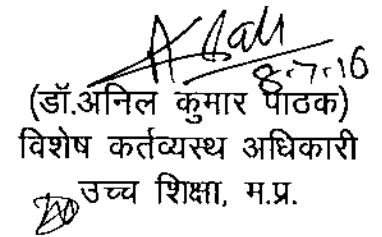 8.7.16
(डॉ.अनिल कुमार पाठक)
विशेष कर्तव्यस्थ अधिकारी
उच्च शिक्षा, म.प्र.